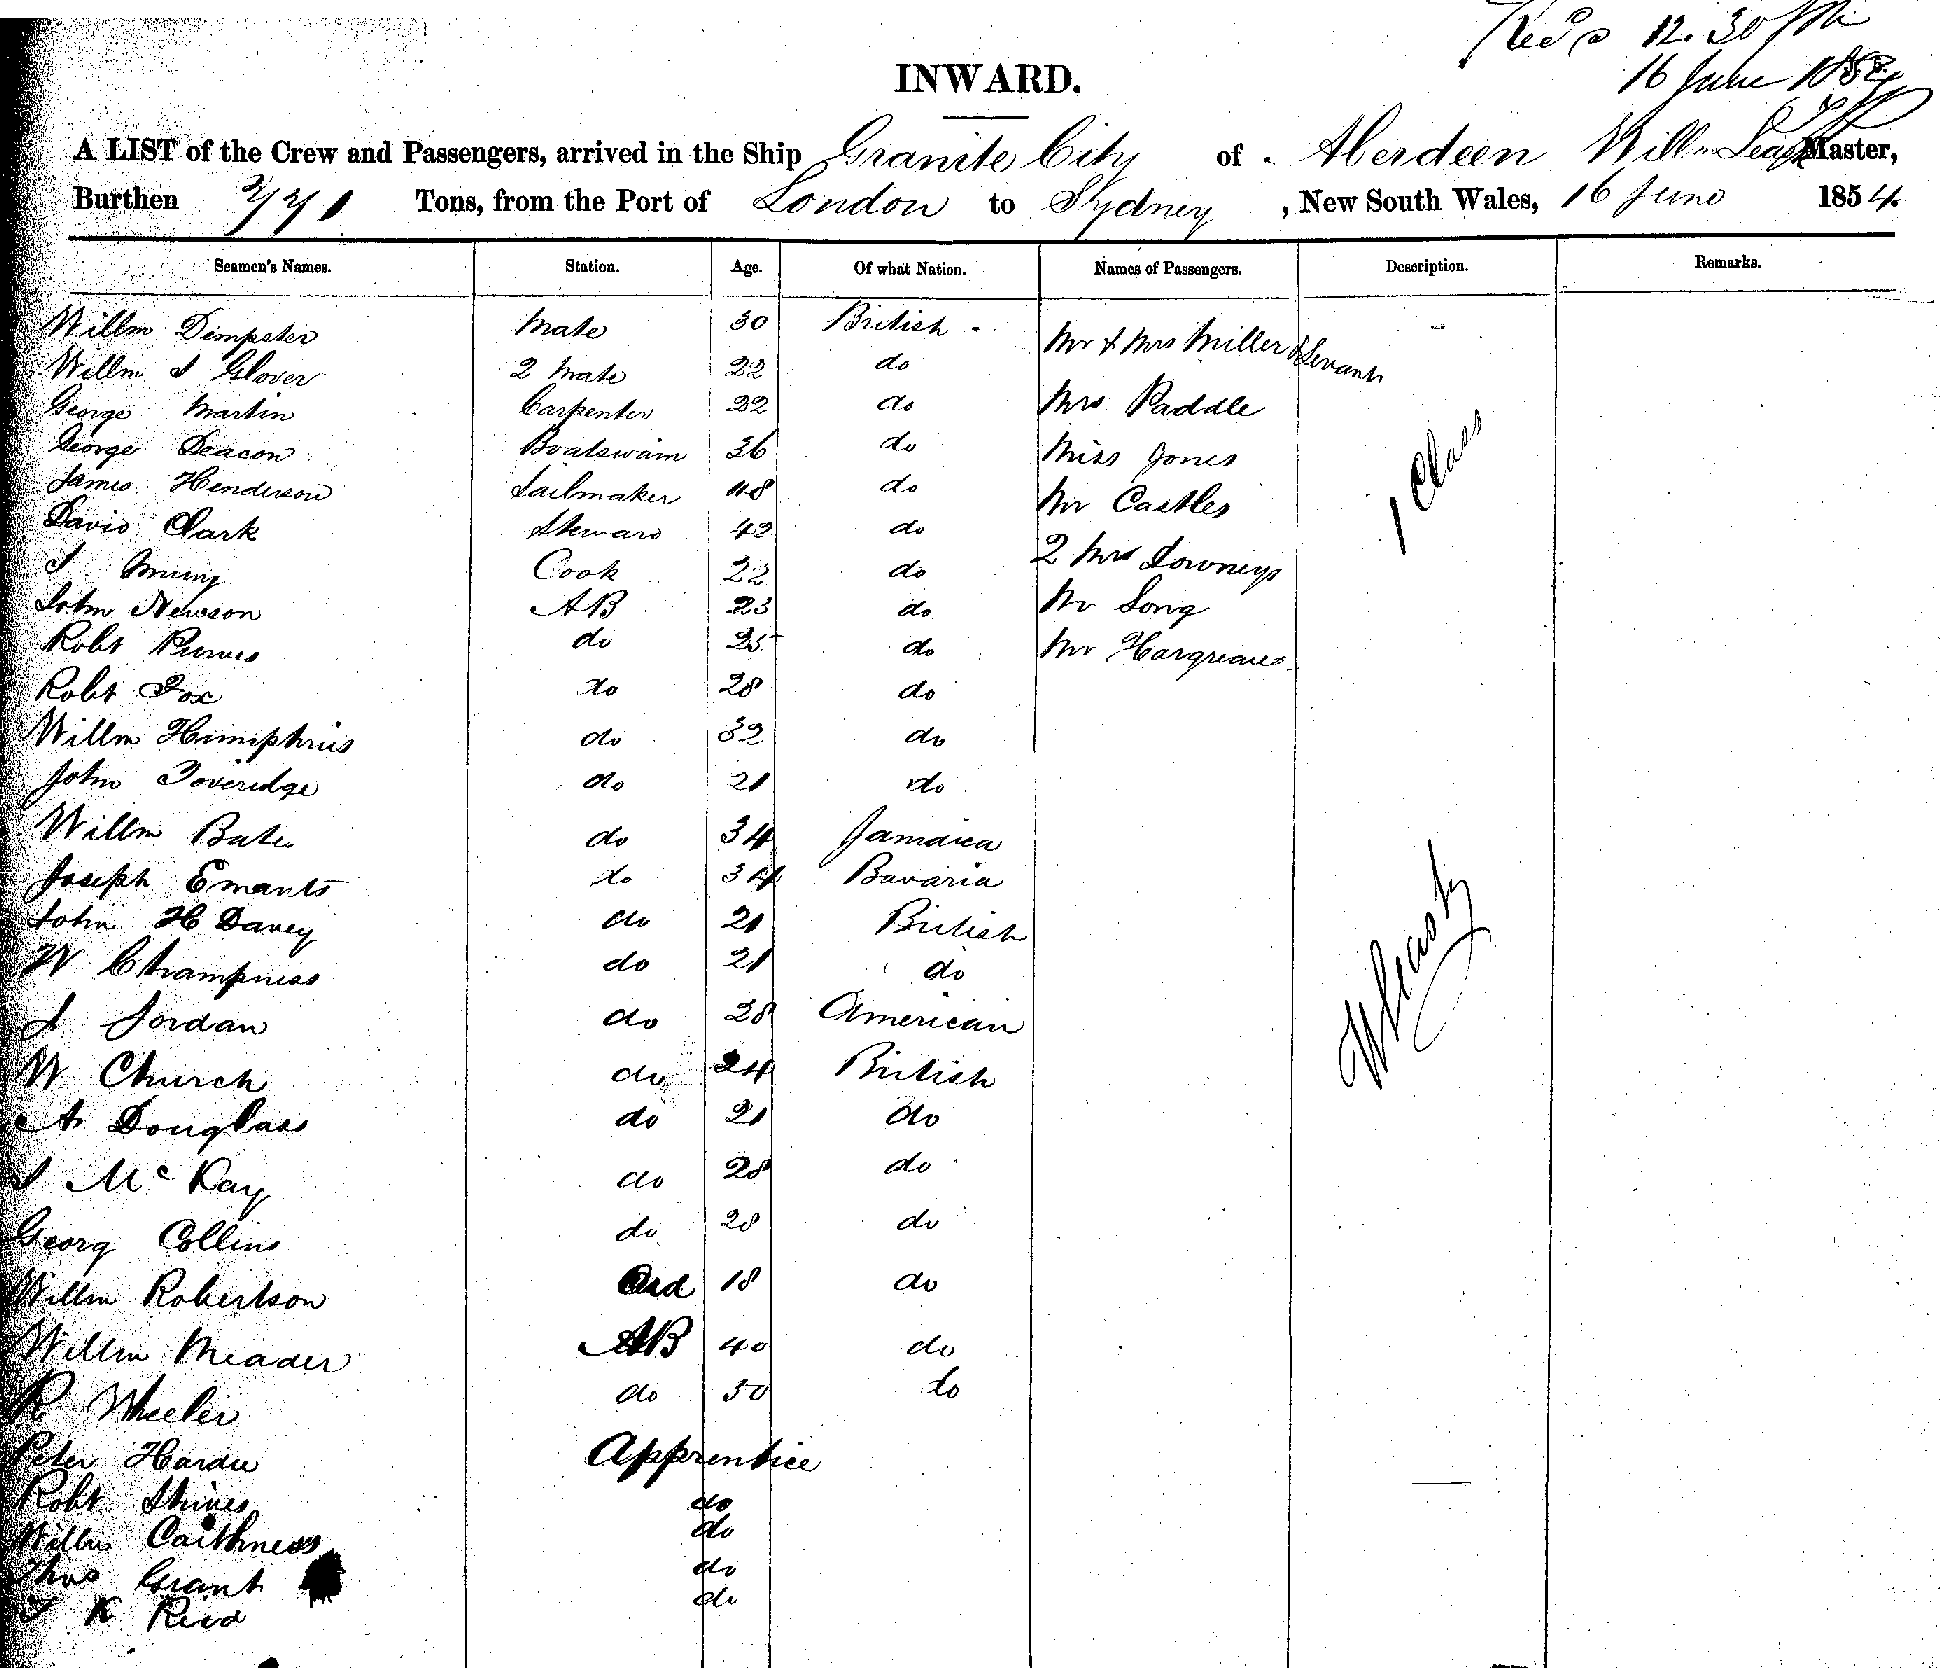 Rec'd 12.30 pm
16 June 1854
INWARD.
A LIST of the Crew and Passengers, arrived in the Ship Granite City of Aberdeen Willm Leask Master,
Burthen 771 Tons, from the Port of London to Sydney, New South Wales, 16 June 1854.
Seamen's Names. Station. Age. Of what Nation. Names of Passengers. Description. Remarks.
Willm Dempster Mate 30 British Mr & Mrs Miller & Servant
Willm J Glover 2 Mate 22 do
George Martin Carpenter 22 do Mrs Paddle
George Deacon Boatswain 36 do Miss Jones
James Henderson Sailmaker 48 do Mr Castles
1 Class
David Clark Steward 42 do
J Cook 22 do 2 Mrs Downeys
John Newson AB 23 do Mr Long
Robt Purves do 25 do Mr Hargreaves
Robt Fox do 28 do
Willm Humphries do 32 do
John Loveridge do 21 do
Willm Bate do 34 Jamaica
Joseph Emants do 34 Bavaria
John H Davey do 21 British
W Champness do 21 do
W Leask
J Jordan do 28 American
W Church do 24 British
A Douglass do 21 do
J McKay do 28 do
Georg Collins do 28 do
Willm Robertson Ord 18 do
Willm Meader AB 40 do
R Wheeler do 50 do
Peter Hardie Apprentice
Robt do
Willm Caithness do
Thos Grant do
J K Reid do